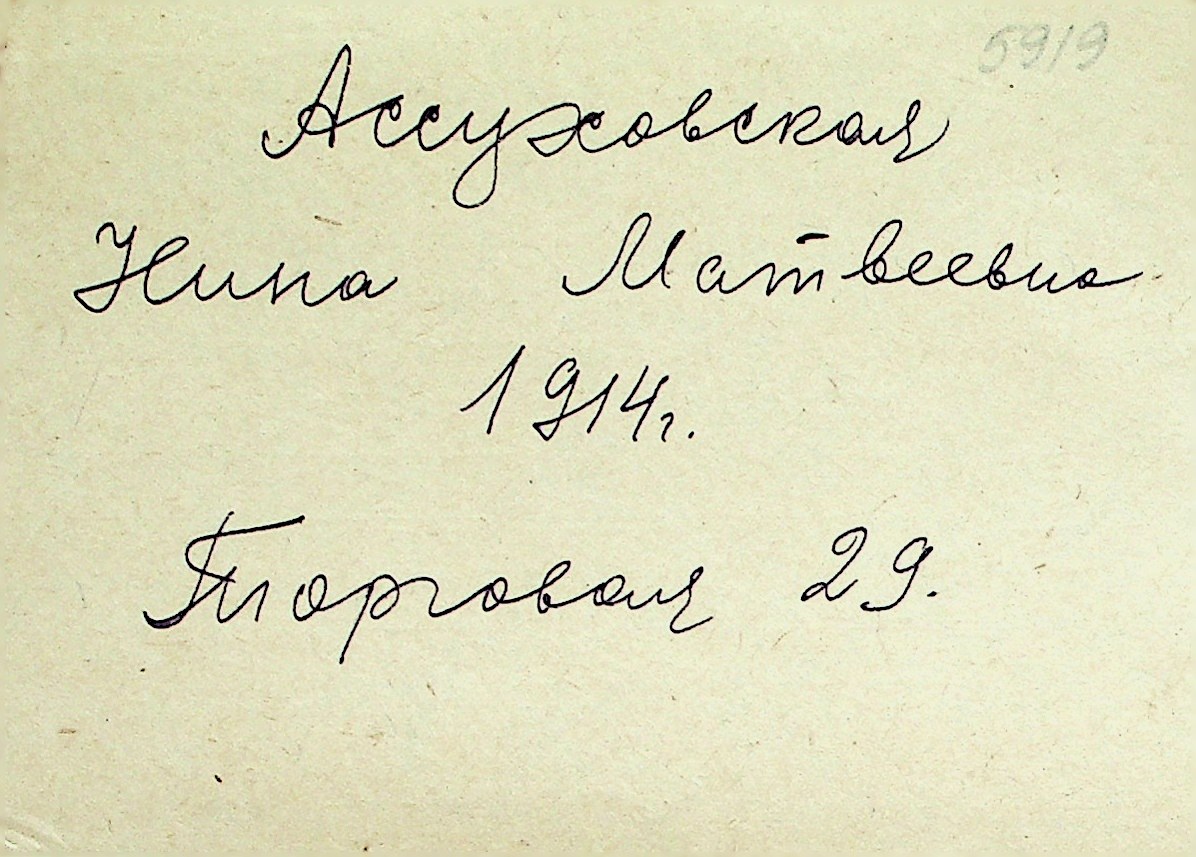 5919
Ассуховская
Нина Матвеевна
1914г.
Торговая 29.